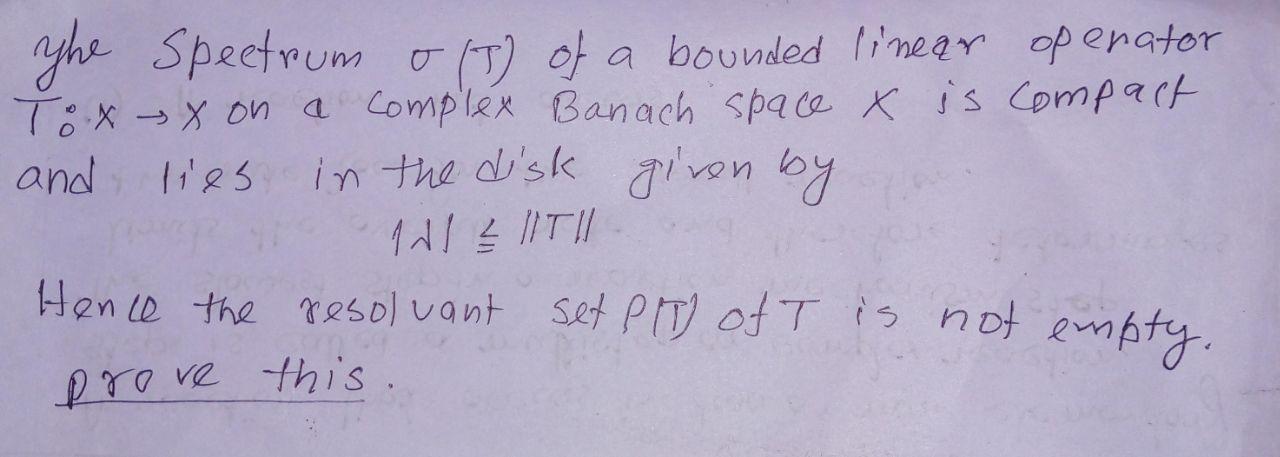 yhe Spectrum σ(T) of a bounded linear operator
T: X → X on a complex Banach space X is compact
and lies in the disk given by
|λ| ≦ ||T||
Hence the resolvant set ρ(T) of T is not empty.
prove this.